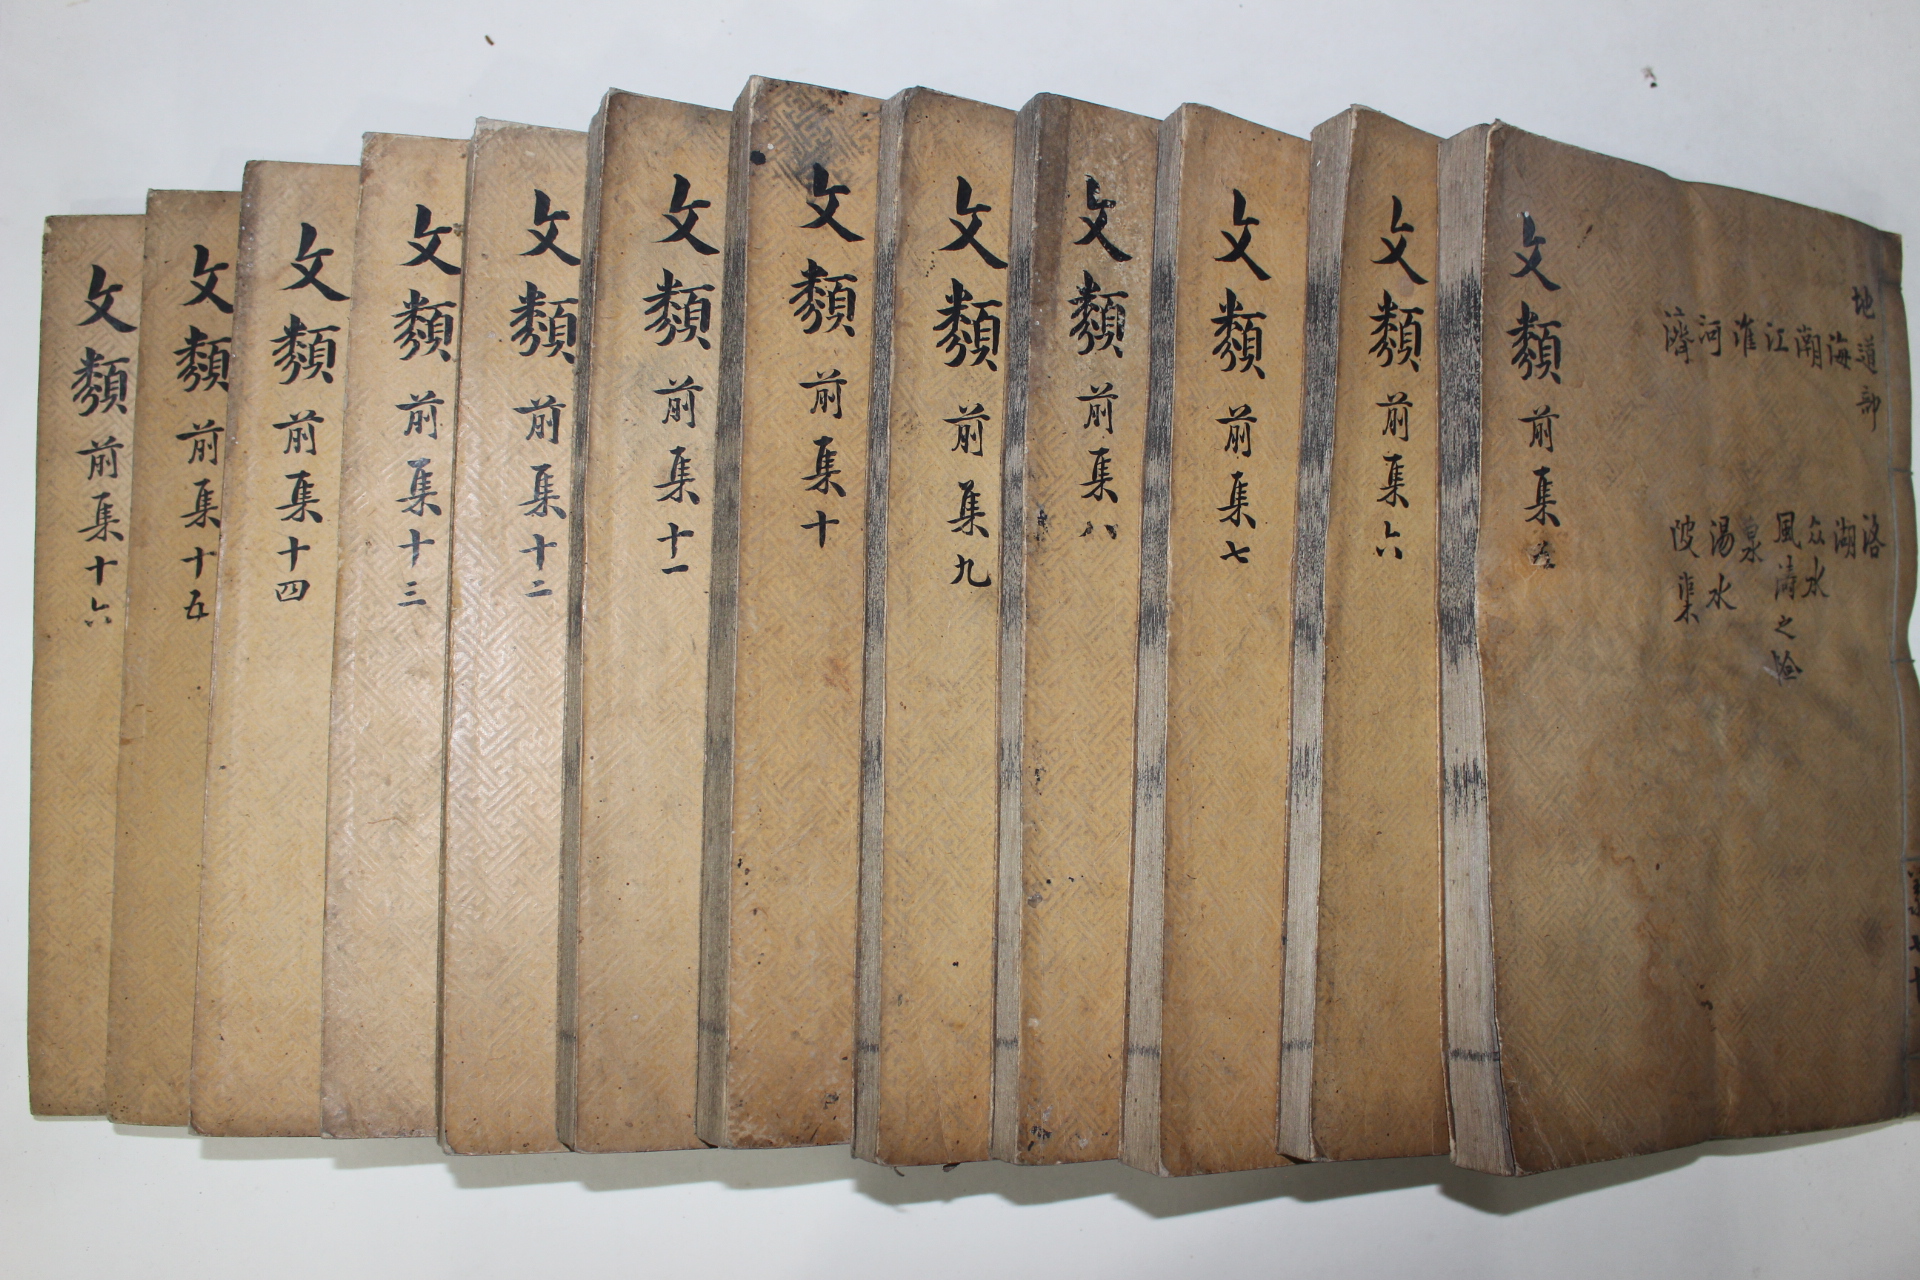 地道部
海
潮
江
淮
河
濟
洛
湖
众水
風濤之險
泉
湯水
陂渠
文類前集五
文類前集六
文類前集七
文類前集八
文類前集九
文類前集十
文類前集十一
文類前集十二
文類前集十三
文類前集十四
文類前集十五
文類前集十六